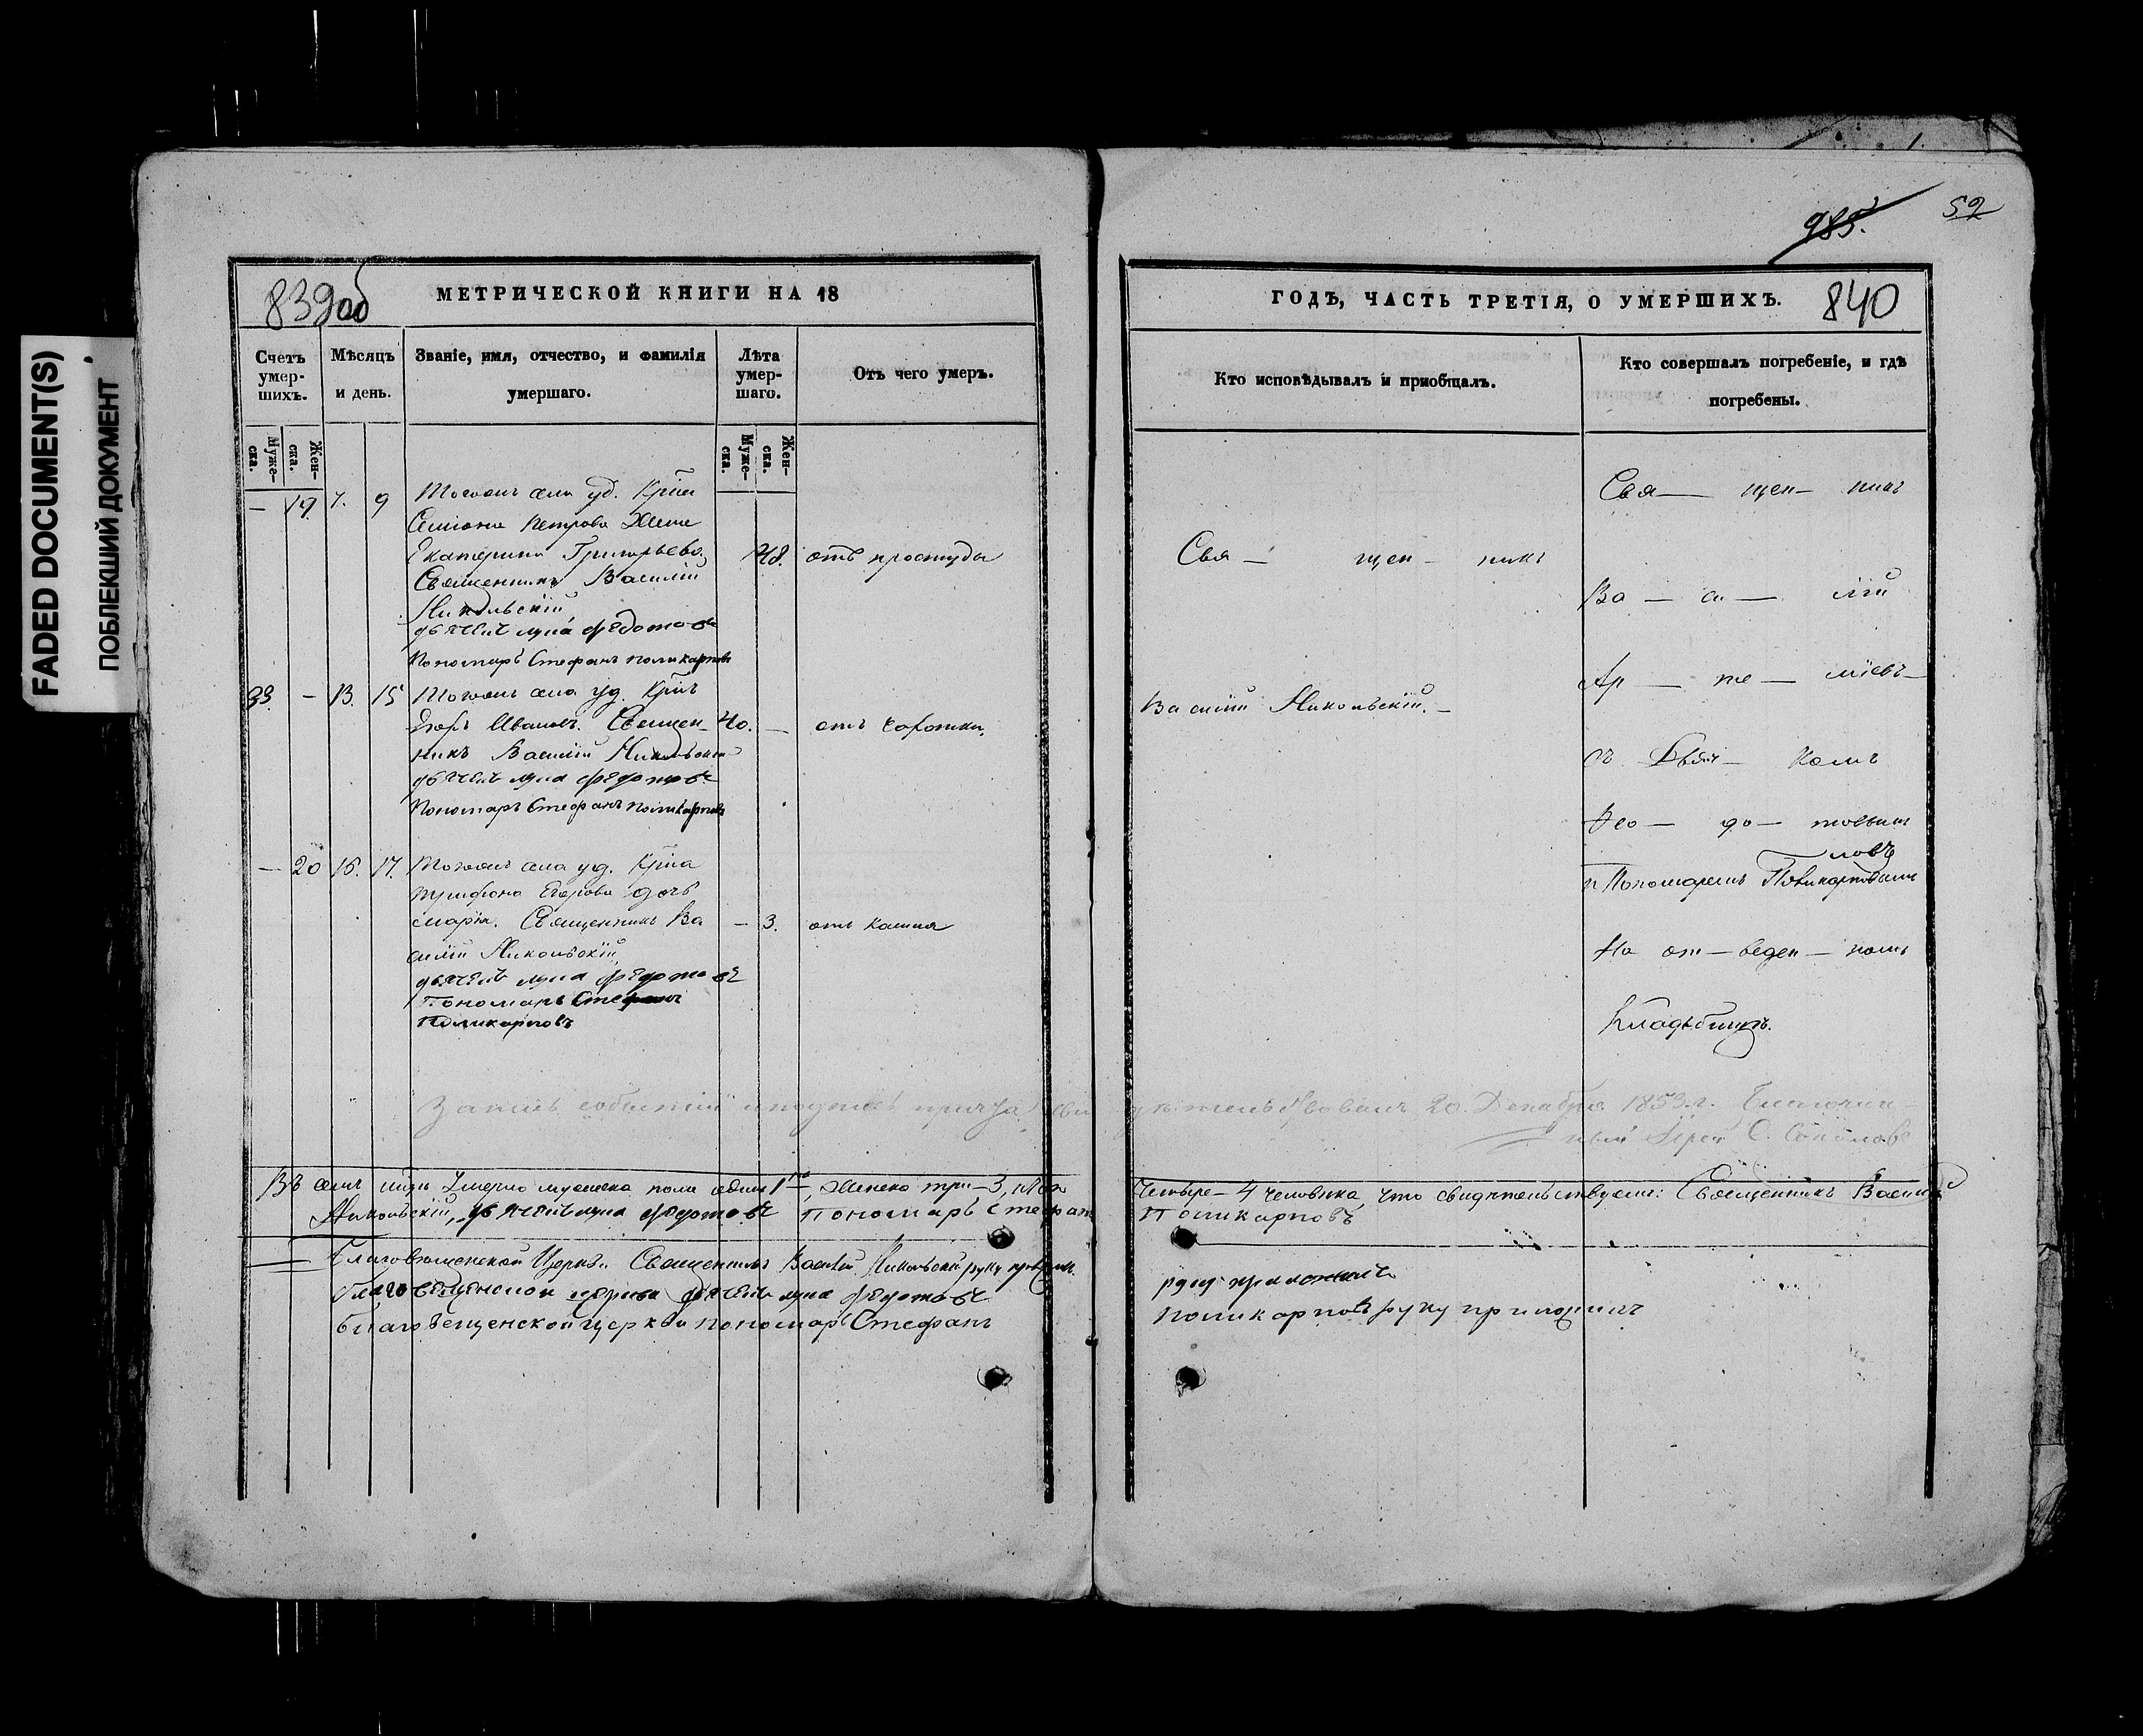 FADED DOCUMENT(S)
ПОБЛЕКШИЙ ДОКУМЕНТ
839об
МЕТРИЧЕСКОЙ КНИГИ НА 18
Счетъ умер-шихъ.
Мѣсяцъ и день.
Званіе, имя, отчество, и фамилія умершаго.
Лѣта умер-шаго.
Отъ чего умеръ.
Муже-ска.
Жен-ска.
Муже-ска.
Жен-ска.
— 19. 7. 9
Тогожъ села уд. Кр-на
Семіона Петрова Жена
Екатерина Григорьева,
48. отъ простуды
Священникъ Василій
Никольскій
дьячекъ лука федотовъ
Пономарь Стефанъ поликарповъ
33. — 13. 15
Тогожъ села уд. Кр-нъ
Егоръ Ивановъ. Священ-
40. — отъ чахотки.
никъ Василій Никольскій
дьячекъ лука федотовъ
Пономарь Стефанъ поликарповъ
— 20 16. 17.
Тогожъ села уд. Кр-на
трифона Егорова дочь
марія. Священникъ Ва
— 3. отъ кашля
силій Никольскій,
дьячекъ лука федотовъ
Пономарь Стефанъ
Поликарповъ
985.
52
ГОДѢ, ЧАСТЬ ТРЕТІЯ, О УМЕРШИХЪ.
840
Кто исповѣдывалъ и приобщалъ.
Кто совершалъ погребеніе, и гдѣ погребены.
Свя — щен — никъ
Василій Никольскій. —
Свя — щен — никъ
Ва — си — лій
Ар — те — міевъ
съ Дьяч — комъ
Ѳео — до — товымъ
ловъ
и Пономаремъ Поликарповымъ
На от — веден — номъ
Кладбищѣ.
Запись событій и подпись причта свидѣтельствовалъ 20. Декабря 1853.г. Благочин-
ный Іерей С. Соколовъ
Въ семъ м-цѣ Умерло мужеска пола одинъ 1, Женска три — 3, Обоего Четыре — 4 человѣка, что свидѣтельствуемъ: Священникъ Василій
Никольскій, дьячекъ лука федотовъ Пономарь Стефанъ Поликарповъ
Благовѣщенской Церкви Священникъ Василій Никольскій руку приложилъ.
благовещенской церкви дьячекъ лука федотовъ руку приложилъ
благовещенской церкви пономарь Стефанъ поликарповъ руку приложилъ